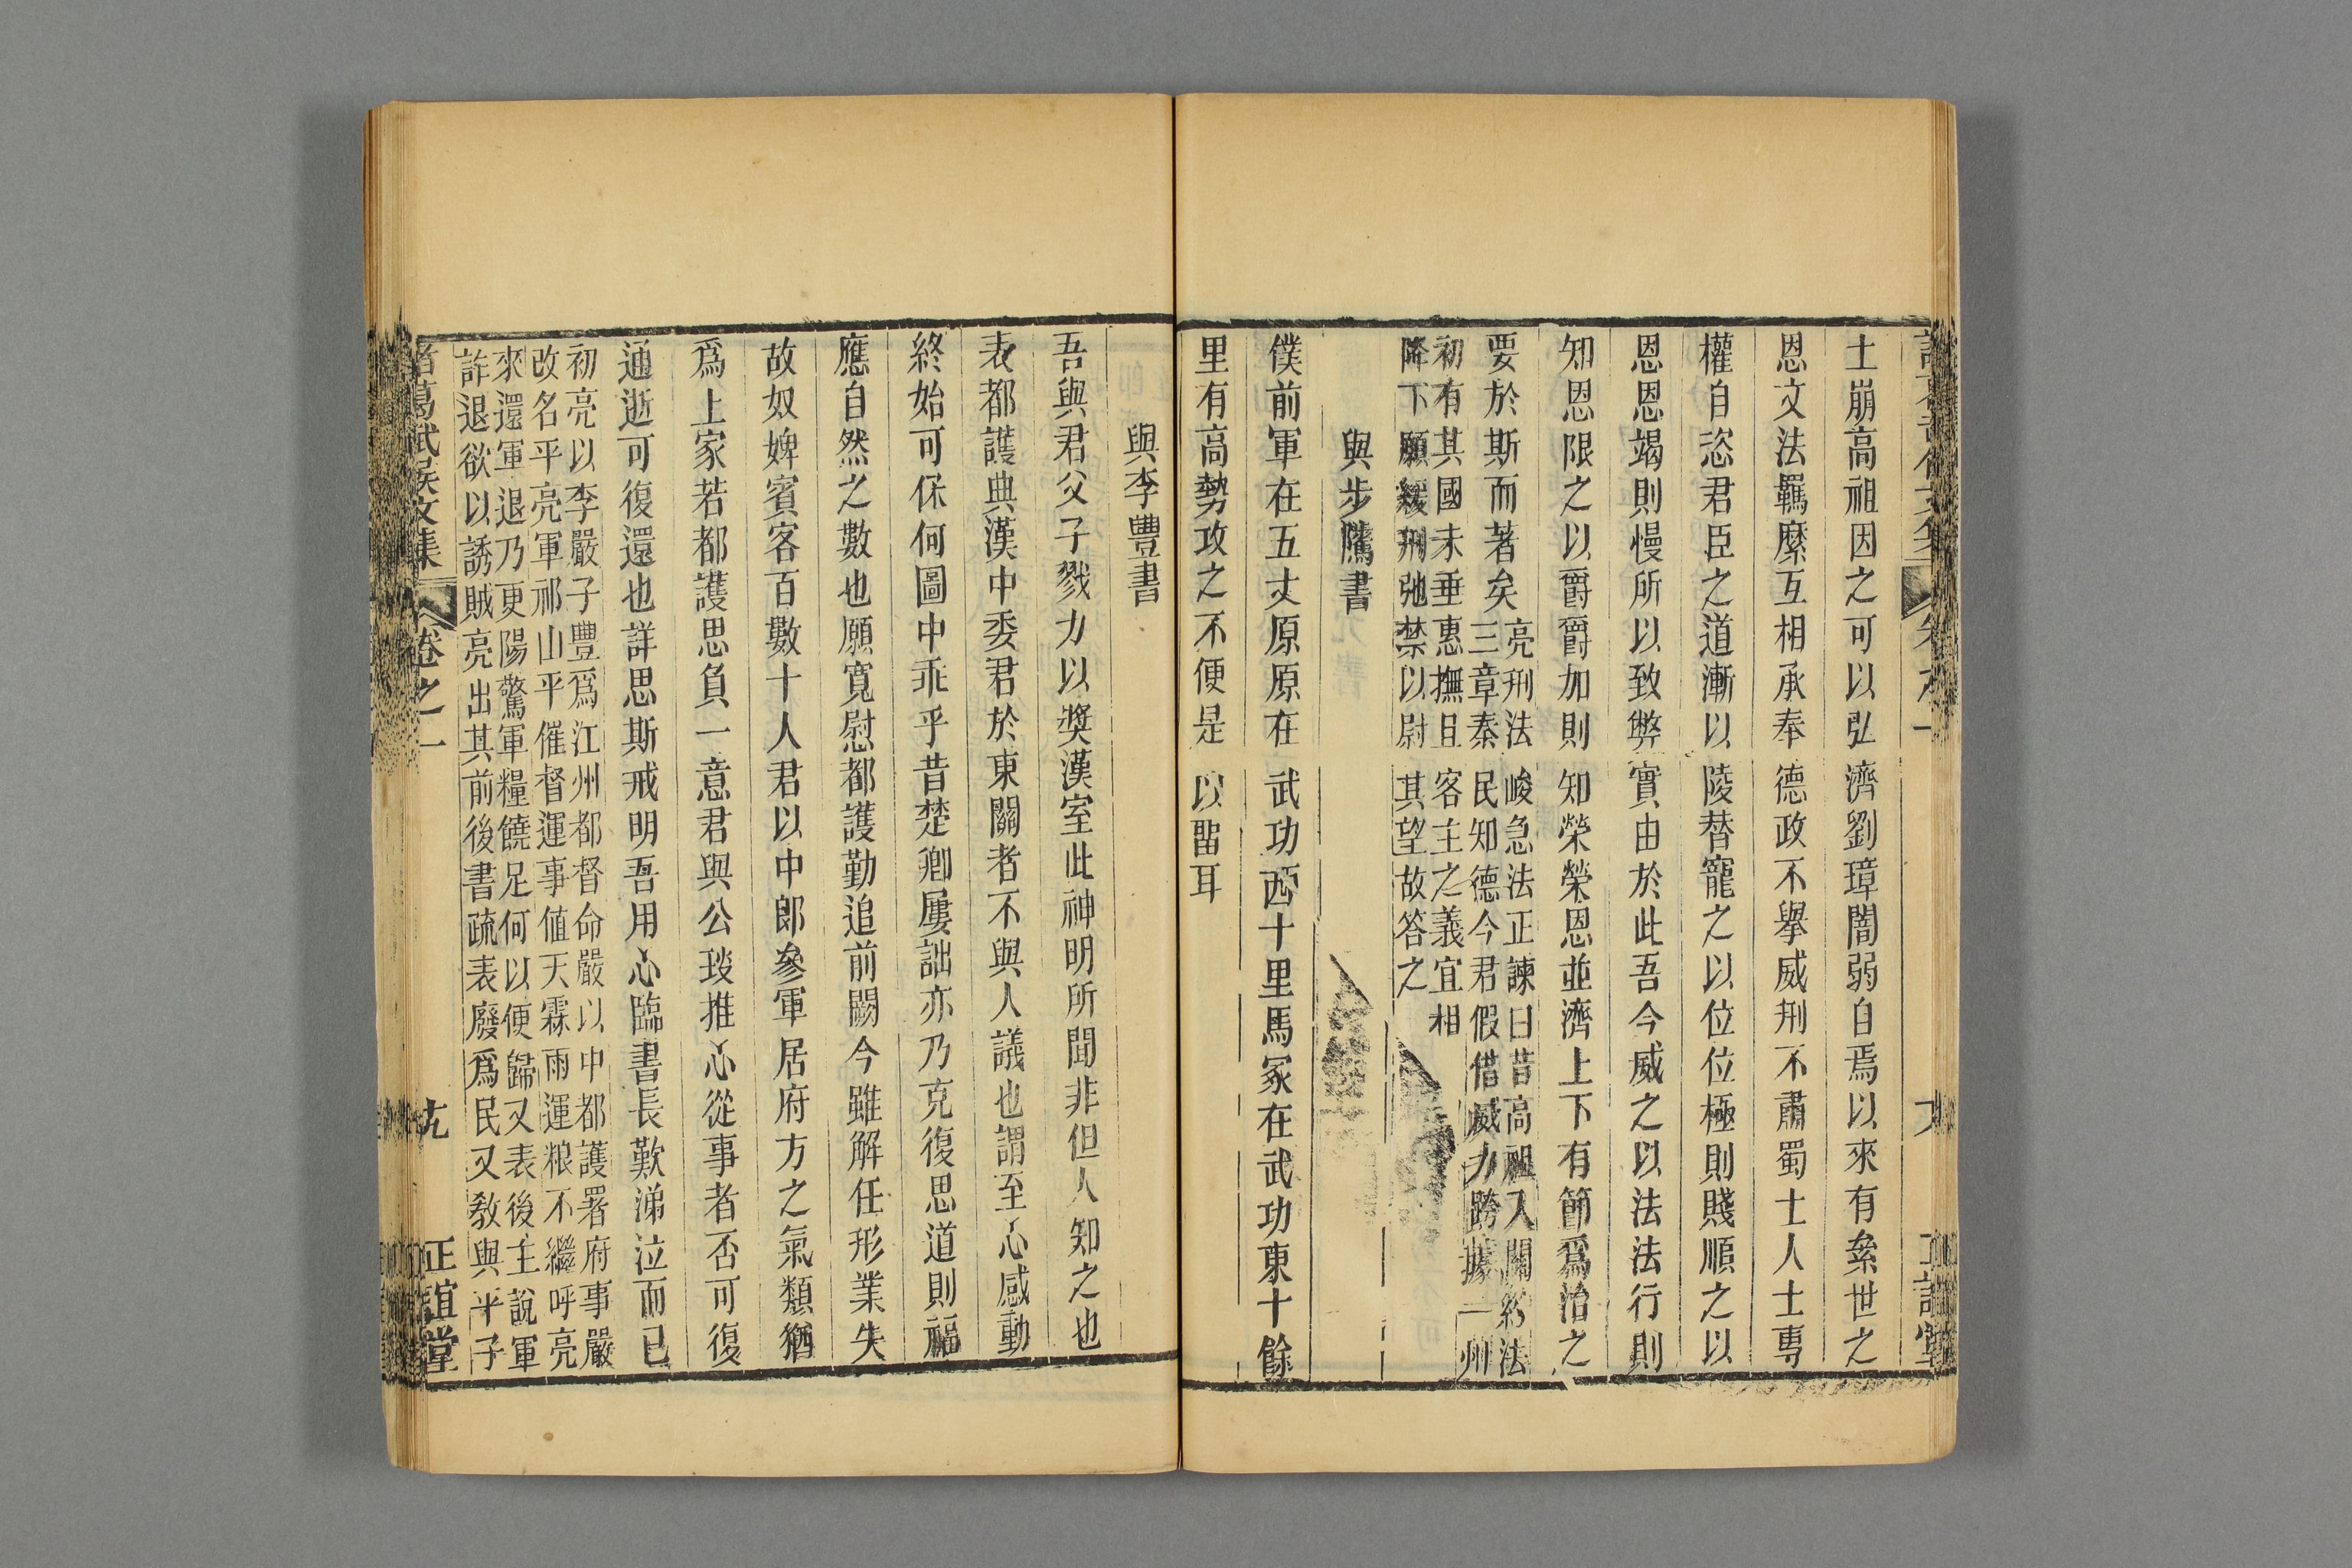 土崩高祖因之可以弘濟劉璋闇弱自焉以來有絫世之
恩文法羈縻互相承奉德政不舉威刑不肅蜀士人士專
權自恣君臣之道漸以陵替寵之以位位極則賤順之以
恩恩竭則慢所以致弊實由於此吾今威之以法法行則
知恩限之以爵爵加則知榮榮恩並濟上下有節爲治之
要於斯而著矣
亮刑法峻急法正諫曰昔高祖入關約法
三章秦民知德今君假借威力跨據一州
初有其國未垂惠撫且客主之義宜相
降下願緩刑弛禁以尉其望故答之
與步騭書
僕前軍在五丈原原在武功西十里馬冢在武功東十餘
里有高勢攻之不便是以畱耳
與李豐書
吾與君父子戮力以奬漢室此神明所聞非但人知之也
表都護典漢中委君於東關者不與人議也謂至心感動
終始可保何圖中乖乎昔楚卿屢詘亦乃克復思道則福
應自然之數也願寬慰都護勤追前闕今雖解任形業失
故奴婢賓客百數十人君以中郎參軍居府方之氣類猶
爲上家若都護思負一意君與公琰推心從事者否可復
通逝可復還也詳思斯戒明吾用心臨書長歎涕泣而已
初亮以李嚴子豐爲江州都督命嚴以中都護署府事嚴
改名平亮軍祁山平催督運事値天霖雨運粮不繼呼亮
來還軍退乃更陽驚軍糧饒足何以便歸又表後主說軍
詐退欲以誘賊亮出其前後書疏表廢爲民又敎與平子
諸葛武侯文集 卷之一 九 正誼堂